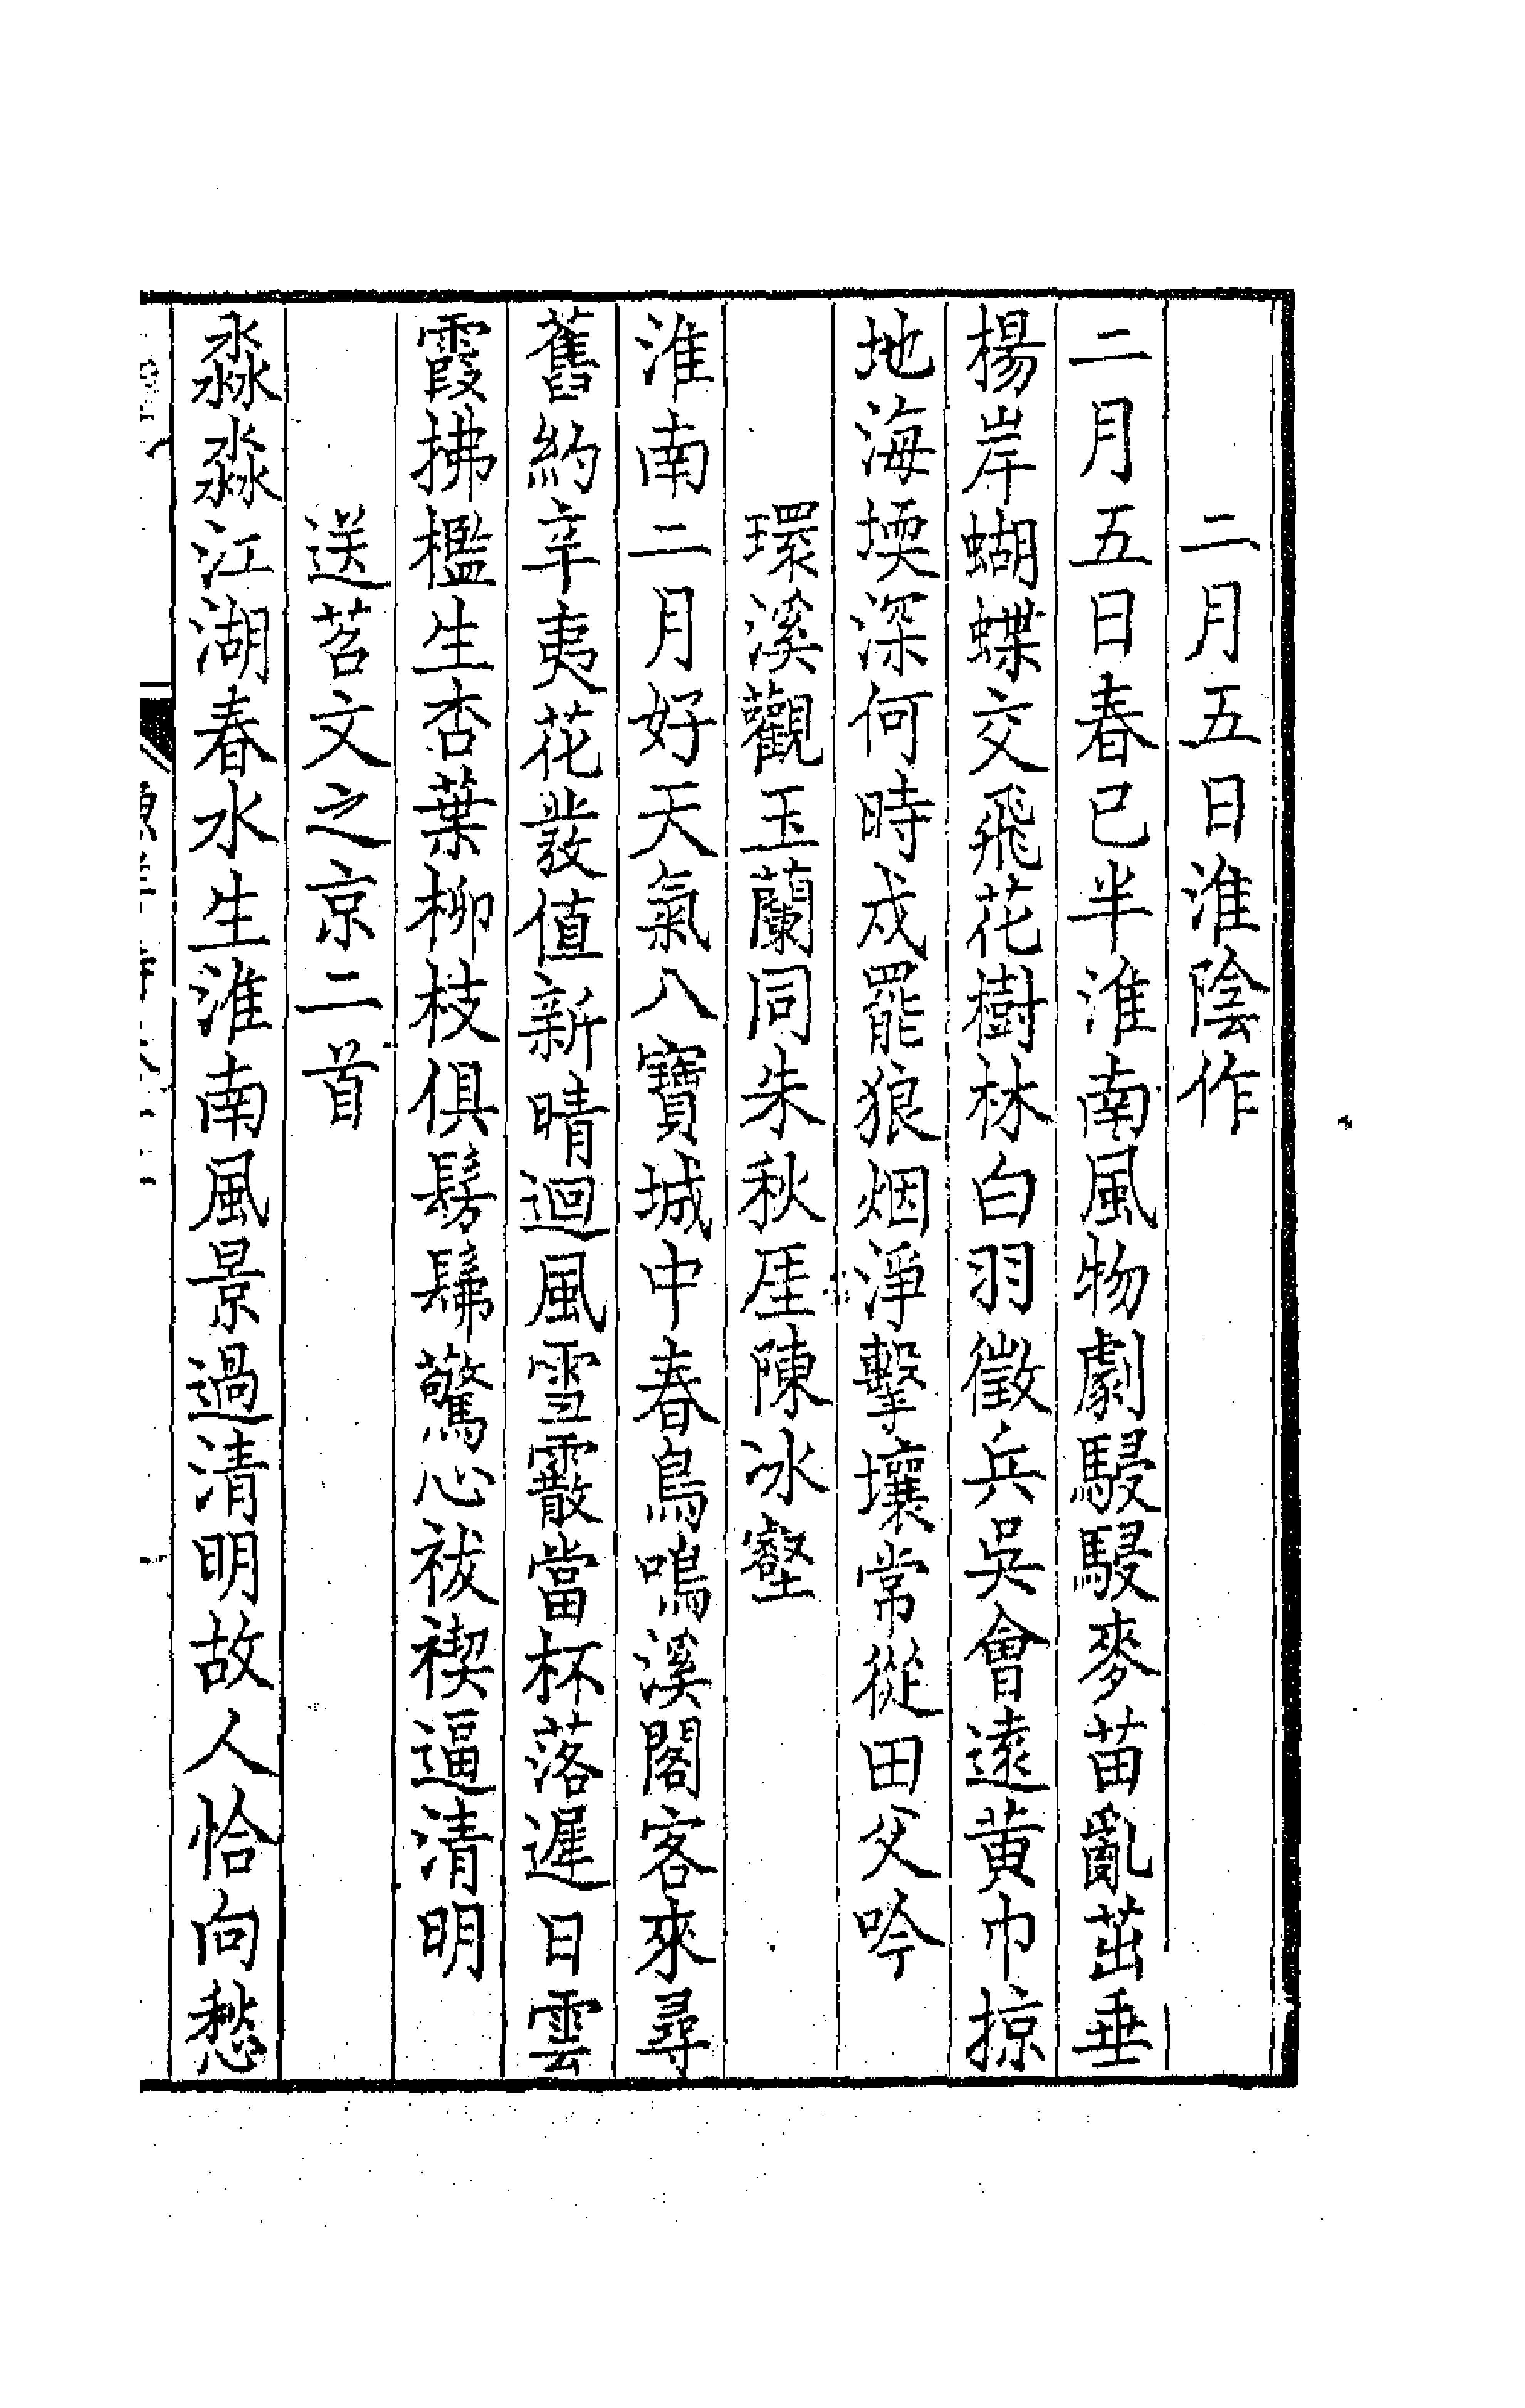 二月五日淮陰作
二月五日春已半淮南風物劇駸駸麥苗亂茁垂
楊岸蝴蝶交飛花樹林白羽徵兵吳會遠黄巾掠
地海堧深何時戍罷狼烟淨擊壤常從田父吟
環溪觀玉蘭同朱秋厓陳冰壑
淮南二月好天氣八寶城中春鳥鳴溪閣客來尋
舊約辛夷花發值新晴迴風雪霰當杯落遲日雲
霞拂檻生杏葉柳枝俱髣髴驚心祓禊逼清明
送苕文之京二首
淼淼江湖春水生淮南風景過清明故人恰向愁